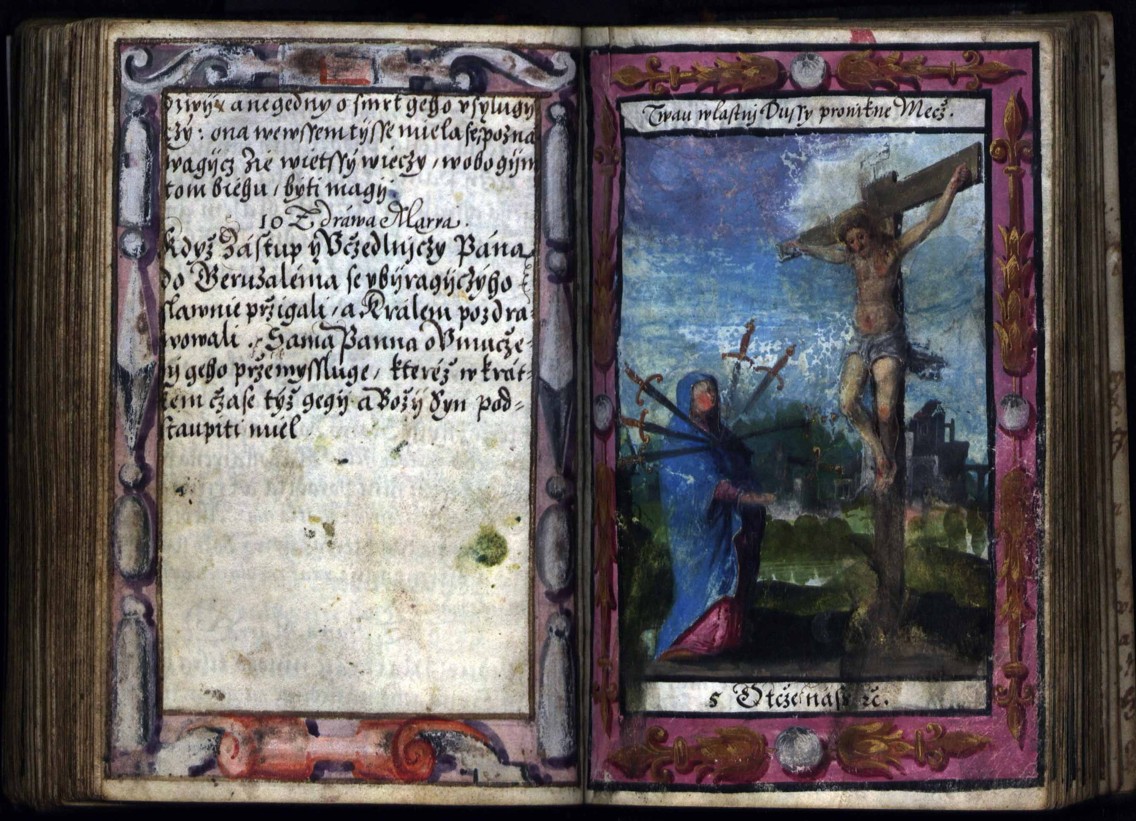 a negedny o smrt geho vsylugy
czy: ona wewssem tysse miela se, pozna
wagycz zie wietssy wieczy / w obogym
tom biehu / byti magy.
10 Zdráwa Marya.
Když Zástup y Včzedlnyczy Pána
do Geruzaléma se vbyragyczýho
slawnie przigali / a Králem pozdra-
wowali / Sama Panna o Vmučze-
ný geho przemyssluge / kteréž w krat-
kém čzase týž gegy a Božý Syn pod-
staupiti miel
Twau wlastnj Dussy pronikne Mecž.
5 Otčzenáss ꝛč.